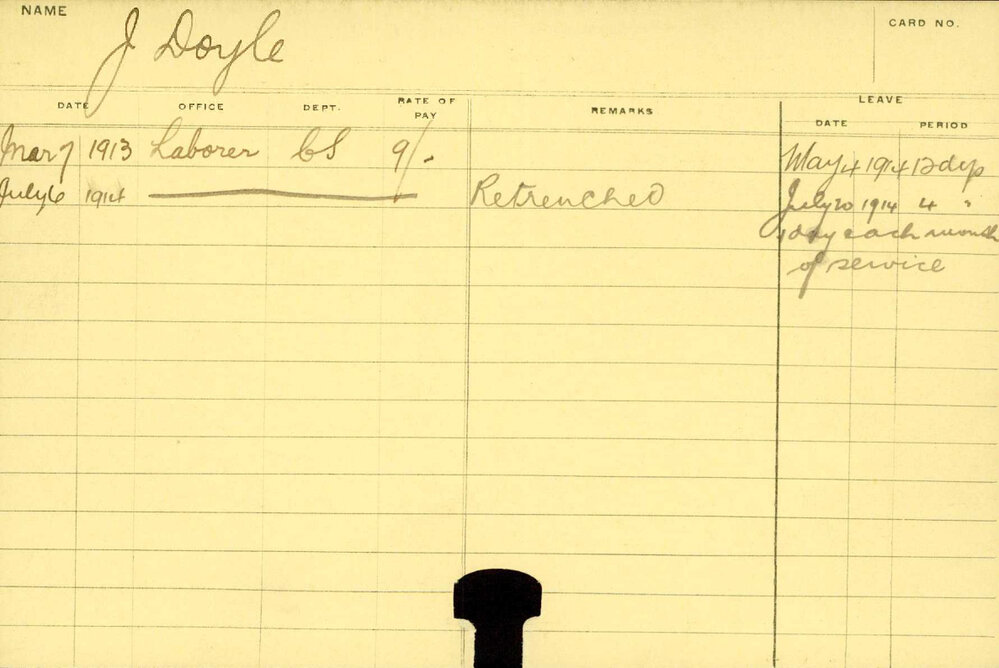 NAME J Doyle CARD NO.
DATE OFFICE DEPT. RATE OF PAY REMARKS LEAVE
DATE PERIOD
Mar 7 1913 Laborer 9/- May 4 1914 12 dys
July 6 1914 Retrenched July 20 1914 4 "
1 day each month
of service